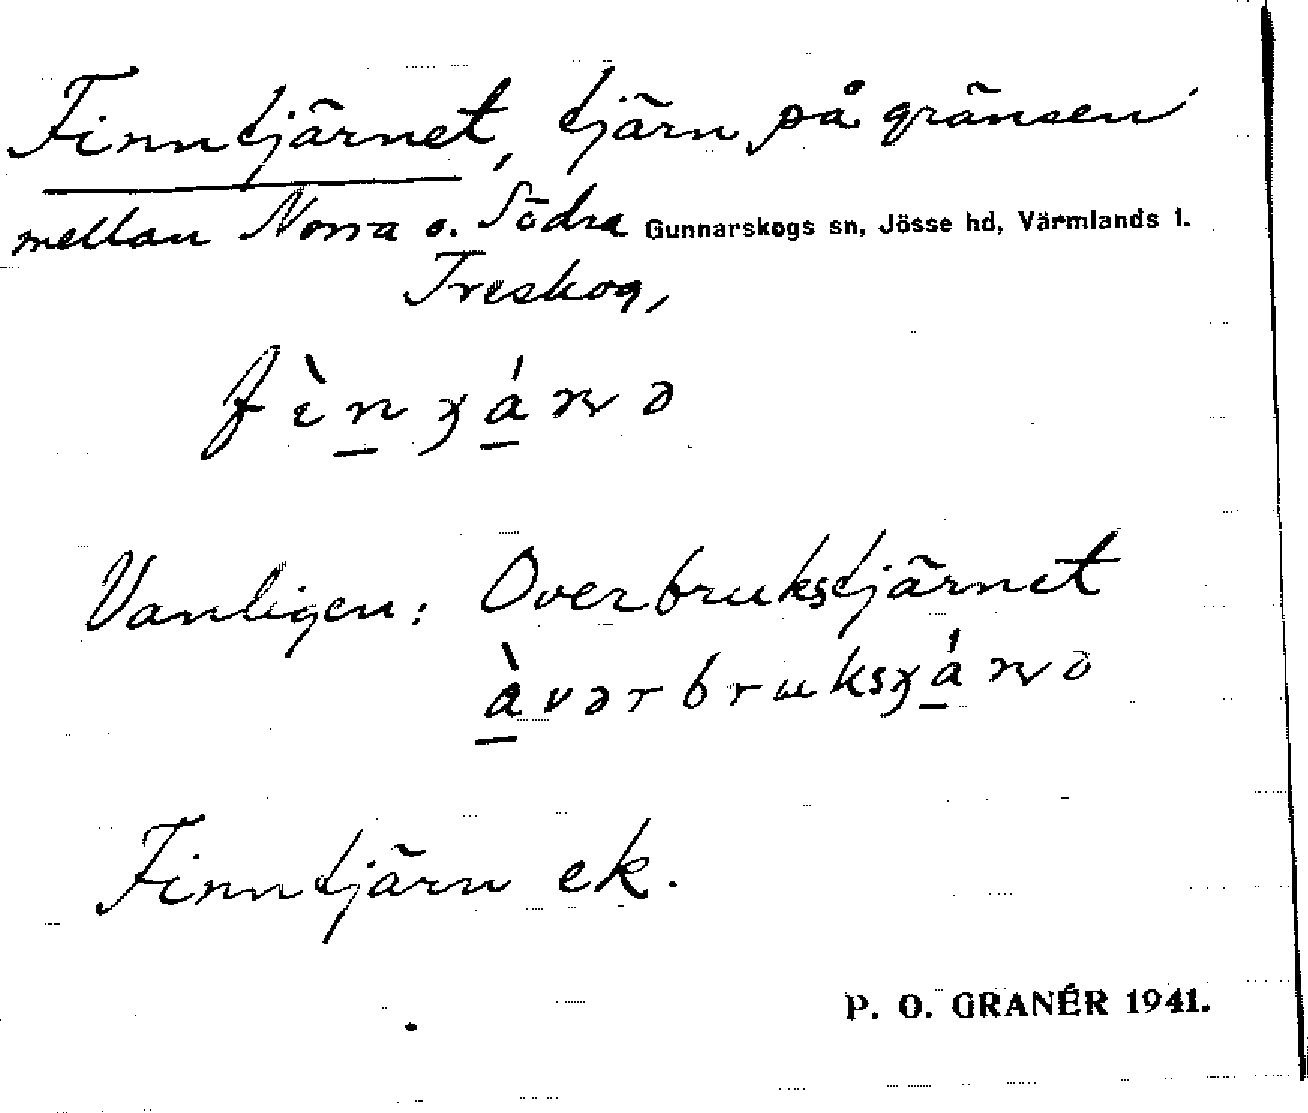 Finntjärnet, tjärn på gränsen
mellan Norra o. Södra Gunnarskogs sn, Jösse hd, Värmlands l.
Treskog,
Vanligen: Överbrukstjärnet
Finntjärn ek.
P. O. GRANÉR 1941.